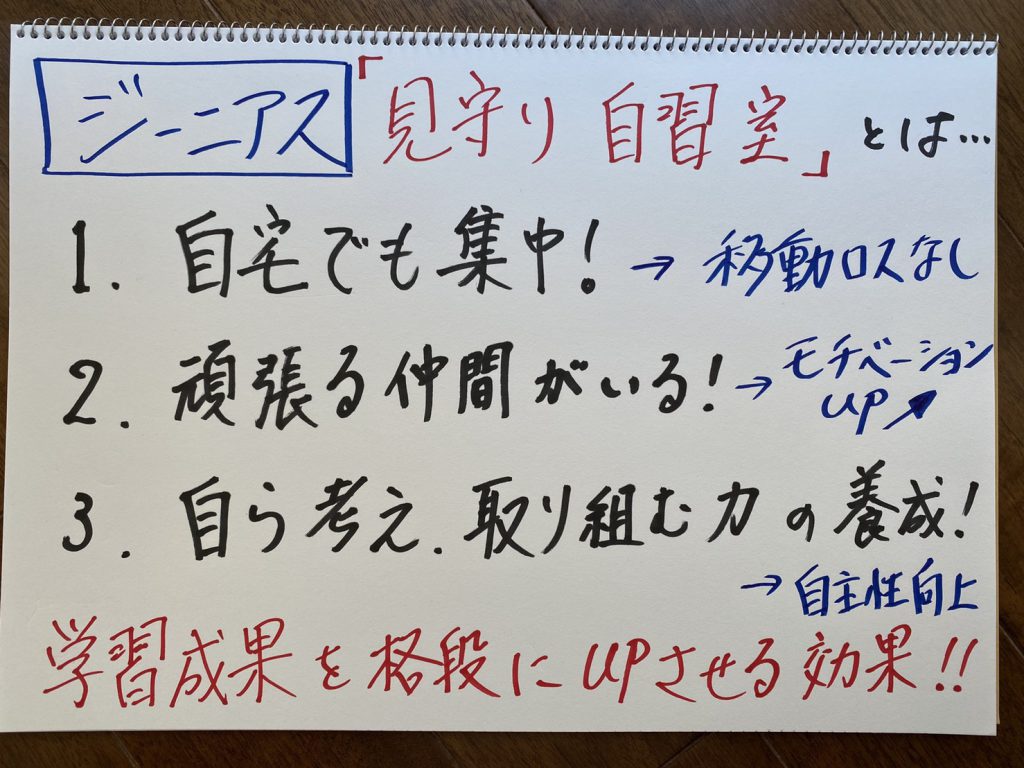 ジーニアス「見守り自習室」とは…
1. 自宅でも集中! → 移動ロスなし
2. 頑張る仲間がいる! → モチベーションUP↗
3. 自ら考え、取り組む力の養成!
→ 自主性向上
学習成果を格段にUPさせる効果!!